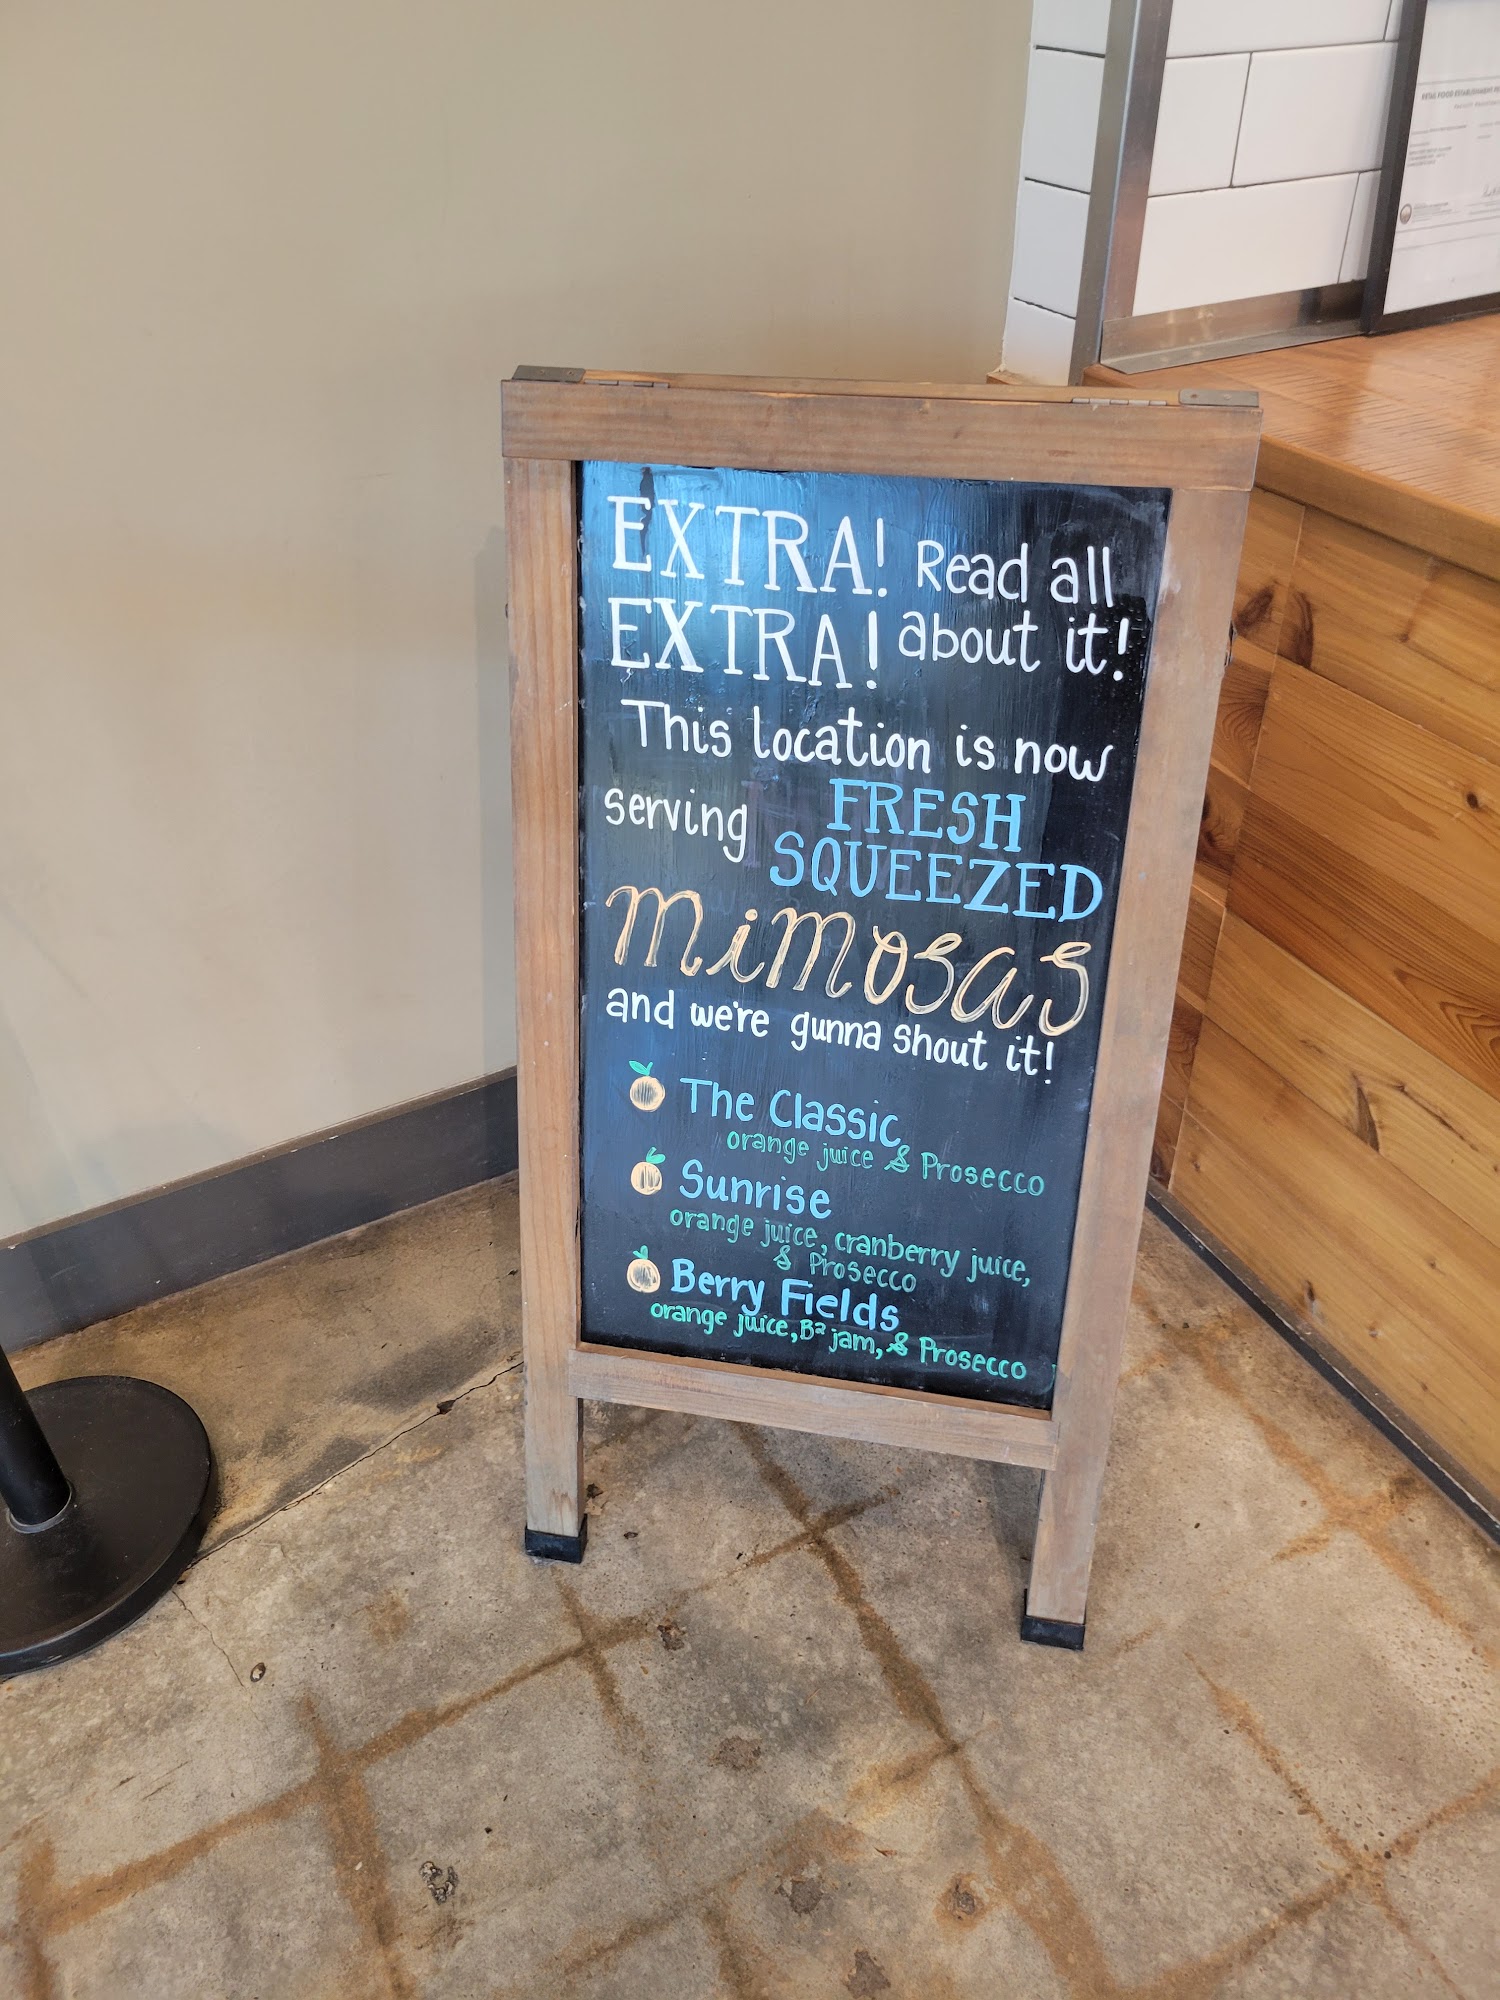 EXTRA! Read all
EXTRA! about it!
This location is now
serving FRESH
SQUEEZED
MiMOSAS
and we're gunna shout it!
The Classic
orange juice & Prosecco
Sunrise
orange juice, cranberry juice,
& Prosecco
Berry Fields
orange juice, B² jam, & Prosecco
RETAIL FOOD ESTABLISHMENT